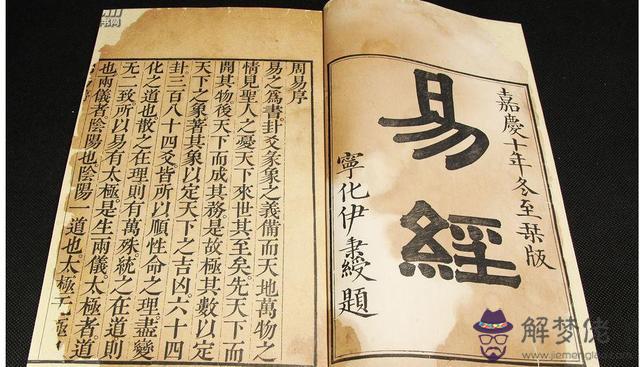 嘉慶十年冬至栞版
易經
寧化伊秉綬題
周易序
易之爲書卦爻彖象之義備而天地萬物之
情見聖人之憂天下來世其至矣先天下而
開其物後天下而成其務是故極其數以定
天下之象著其象以定天下之吉凶六十四
卦三百八十四爻皆所以順性命之理盡變
化之道也散之在理則有萬殊統之在道則
无二致所以易有太極是生兩儀太極者道
也兩儀者陰陽也陰陽 道也太極无極
解梦佬
www.jiemenglao.com